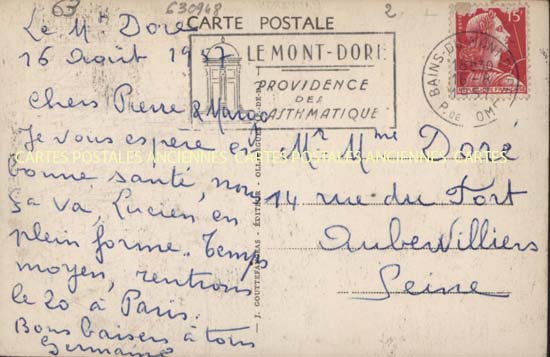 63
630948
2
CARTE POSTALE
Le Mt Dore
16 Août 1957
Chers Pierre & Margo
Je vous espère en
bonne santé, nous
ça va, Lucien en
plein forme. Temps
moyen, rentrons
le 20 à Paris.
Bons baisers à tous
Germaine
LE MONT-DORE
PROVIDENCE
DES
ASTHMATIQUES
15F
BAINS-DU-MONT-
P. DE DOME
Mr Mme Doré
14 rue du Fort
Aubervilliers
Seine
CARTES POSTALES ANCIENNES CARTES POSTALES ANCIENNES CARTES POSTALES ANCIENNES
J. GOUTTEFANGEAS - ÉDITEUR - OLLIERGUES